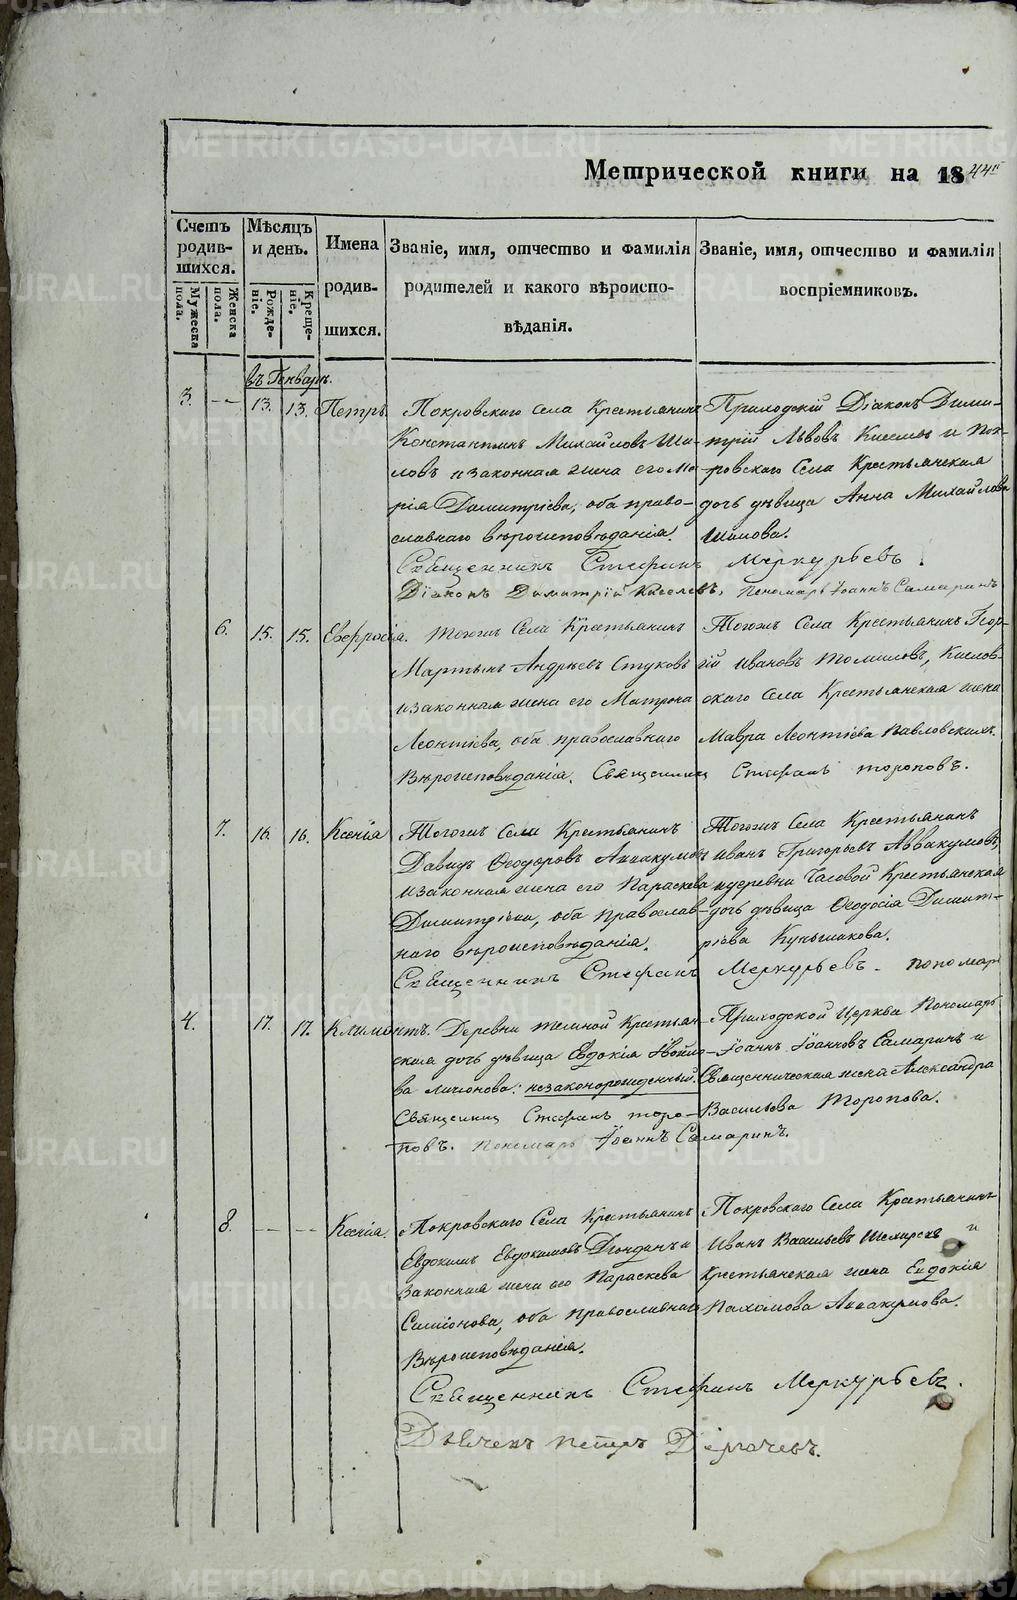 METRIKI.GASO-URAL.RU
Метрической книги на 1844й
Счетъ родившихся.
Мужеска пола.
Женска пола.
Мѣсяцъ и день.
Рожденіе.
Крещеніе.
Имена родившихся.
Званіе, имя, отчество и фамилія родителей и какого вѣроисповѣданія.
Званіе, имя, отчество и фамилія воспріемниковъ.
въ Генварѣ.
3. — 13. 13. Петръ.
Покровскаго села Крестьянинъ
Константинъ Михайловъ Ши-
ловъ и законная жена его Ма-
рія Димитріева, оба право-
славнаго вѣроисповѣданія.
Приходскій Діаконъ Дими-
трій Львовъ Киселевъ и Пок-
ровскаго Села Крестьянская
дочь дѣвица Анна Михайлова
Шилова.
Священникъ Стефанъ Меркурьевъ.
Діаконъ Димитрій Киселевъ. пономарь Іоаннъ Самаринъ
6. 15. 15. Евфросія.
Тогожъ Села Крестьянинъ
Мартынъ Андреевъ Стуковъ
и законная жена его Матрона
Леонтіева, оба православнаго
Вѣроисповѣданія.
Тогожъ Села Крестьянинъ Геор-
гій Ивановъ Томиловъ, Кислов-
скаго Села Крестьянская жена
Мавра Леонтіева Павловскихъ.
Священникъ Стефанъ тороповъ.
7. 16. 16. Ксенія
Тогожъ Села Крестьянинъ
Давидъ Ѳеодоровъ Аввакумовъ
и законная жена его Параскева
Димитріева, оба православ-
наго вѣроисповѣданія.
Тогожъ Села Крестьянинъ
Иванъ Григорьевъ Аввакумовъ,
и деревни Часовой Крестьянская
дочь дѣвица Ѳеодосія Димит-
ріева
Священникъ Стефанъ Меркурьевъ. пономарь
4. 17. 17. Климонтъ.
Деревни темной Крестьян-
ская дочь дѣвица Евдокія
ва незаконорожденный.
Приходской Церкви Пономарь
Іоаннъ Іоанновъ Самаринъ и
Священническая жена Александра
Васильева Торопова.
Священникъ Стефанъ торо-
повъ. пономарь Іоаннъ Самаринъ.
8. — — Ксенія.
Покровскаго Села Крестьянинъ
Евдокимъ Евдокимовъ
Законная жена его Параскева
Симіонова, оба православнаго
Вѣроисповѣданія.
Покровскаго Села Крестьянинъ
Иванъ Васильевъ и
Крестьянская жена Евдокія
Пахомова Аввакумова.
Священникъ Стефанъ Меркурьевъ.
Дьячекъ петръ Дергачевъ.